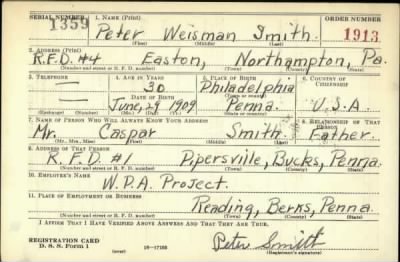 SERIAL NUMBER 1. NAME (Print) ORDER NUMBER
1359 Peter Weisman Smith 1913
(First) (Middle) (Last)
2. ADDRESS (Print)
R.F.D. #4 Easton, Northampton, Pa.
(Number and street or R. F. D. number) (Town) (County) (State)
3. TELEPHONE 4. AGE IN YEARS 5. PLACE OF BIRTH 6. COUNTRY OF CITIZENSHIP
— 30 Philadelphia
DATE OF BIRTH (Town or county)
— June, 29 1909 Penna. U.S.A.
(Exchange) (Number) (Mo.) (Day) (Yr.) (State or country)
7. NAME OF PERSON WHO WILL ALWAYS KNOW YOUR ADDRESS 8. RELATIONSHIP OF THAT PERSON
Mr. Caspar Smith. Father.
(Mr., Mrs., Miss) (First) (Middle) (Last)
9. ADDRESS OF THAT PERSON
R.F.D. #1 Pipersville, Bucks, Penna.
(Number and street or R. F. D. number) (Town) (County) (State)
10. EMPLOYER'S NAME
W.P.A. Project.
11. PLACE OF EMPLOYMENT OR BUSINESS
Reading, Berks, Penna.
(Number and street or R. F. D. number) (Town) (County) (State)
I AFFIRM THAT I HAVE VERIFIED ABOVE ANSWERS AND THAT THEY ARE TRUE.
REGISTRATION CARD
D. S. S. Form 1 (over) 16—17105 Peter Smith
(Registrant's signature)